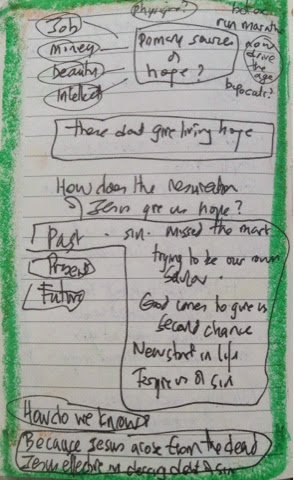 Job
money
Beauty
Intellect
Physique?
Primary sources
of
hope?
run marath
now
drive
the
age
bypocalc?
These dont give living hope
How does the resurrection
of Jesus give us hope?
Past . sin. missed the mark
trying to be our own
Savior.
Present
Future
God comes to give us
second chance
New start in life
Forgive us of sin
How do we know?
Because Jesus arose from the dead
Jesus effective in dealing death & sin